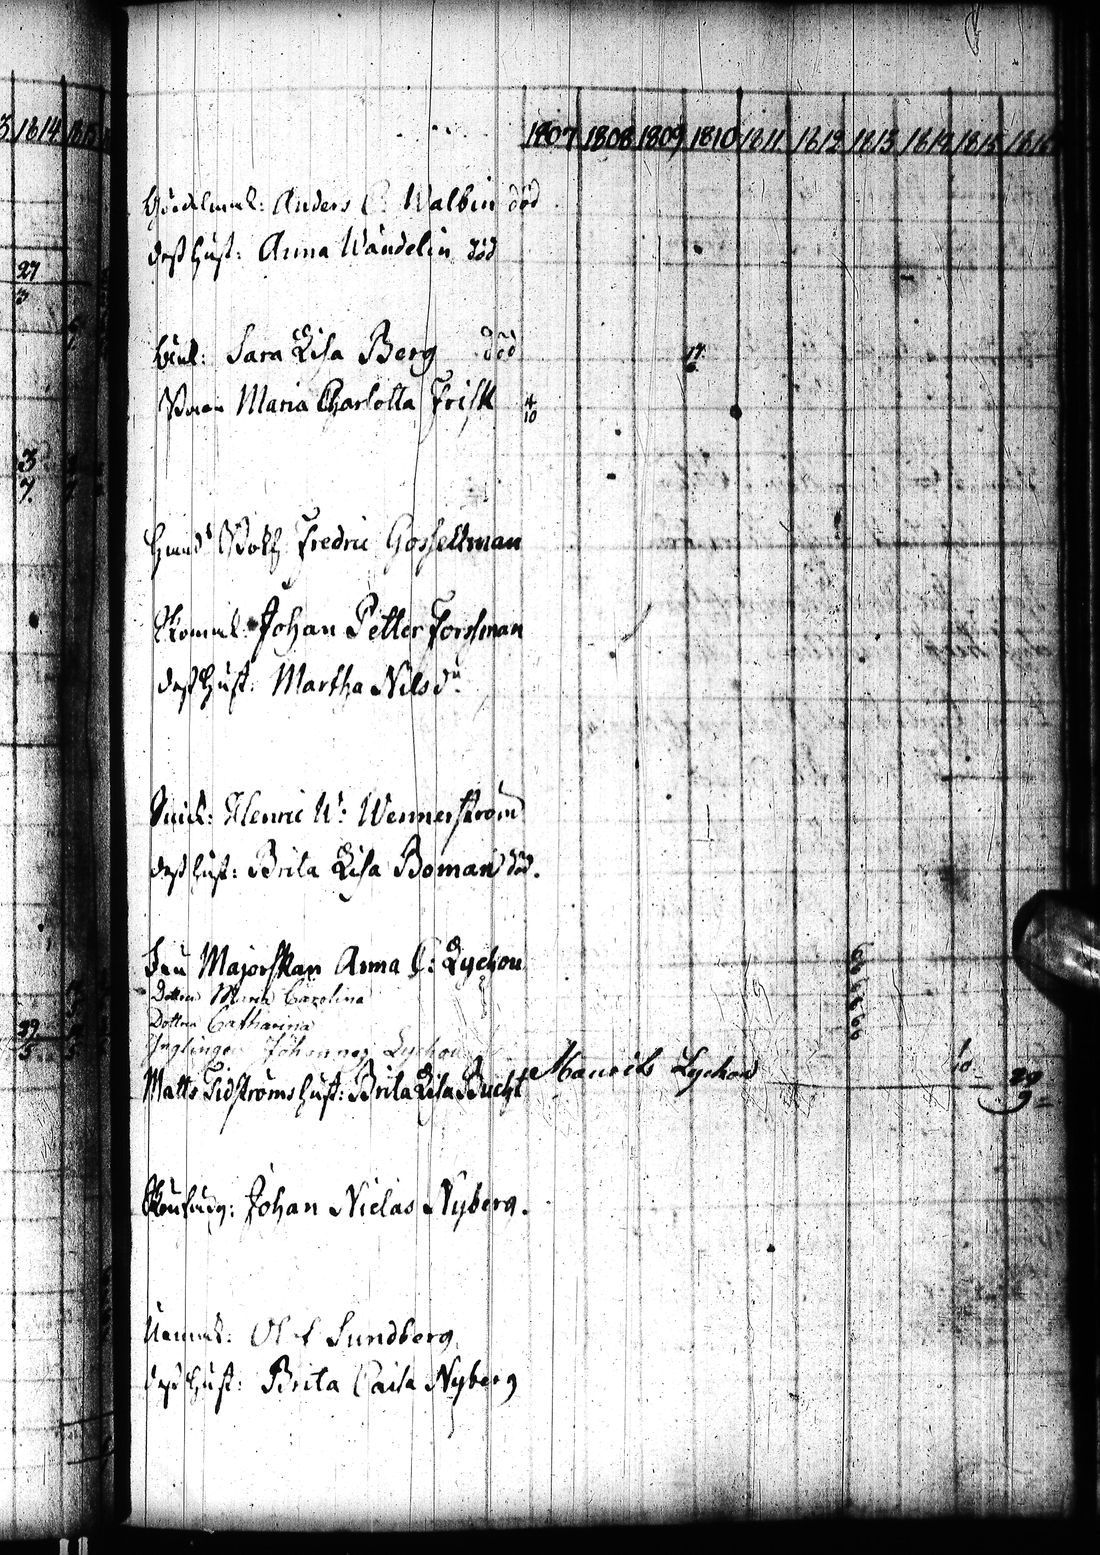 3 1814 1815
1807 1808 1809 1810 1811 1812 1813 1814 1815 1816
Anders C: Walbin död
dess hust: Anna Wandelin död
27
3
Sara Lisa Berg död 17
6
Maria Charlotta Frisk 4
10
3
7
Fredric Gosselman
Johan Petter Forssman
dess hust: Martha Nilsdr
Snick: Henric W: Wennerström
dess hust: Brita Lisa Boman död.
Fru Majorskan Anna C: Lychou
Dottren Maria Carolina
Dottren Catharina
29
5
Ynglingen Johannes Lychou
Matts Tidströms hust: Brita Lisa Bucht Mauritz Lychou 1
10 29
9
Johan Niclas Nyberg.
Olof Sundberg
dess hust: Brita Caisa Nyberg